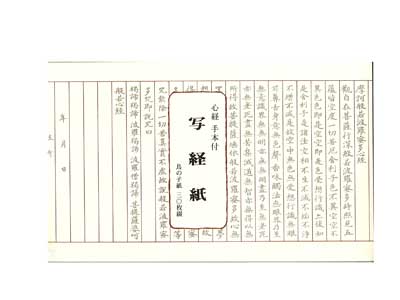 摩訶般若波羅蜜多心経
観自在菩薩行深般若波羅蜜多時照見五
蘊皆空度一切苦厄舎利子色不異空空不
異色色即是空空即是色受想行識亦復如
是舎利子是諸法空相不生不滅不垢不浄
不増不減是故空中無色無受想行識無眼
耳鼻舌身意無色声香味触法無眼界乃至
無意識界無無明亦無無明尽乃至無老死
亦無老死尽無苦集滅道無智亦無得以無
所得故菩提薩埵依般若波羅蜜多故心無
心経 手本付
写経紙
鳥の子紙 三〇枚綴
咒能除一切苦真実不虚故説般若波羅蜜
多咒即説咒曰
羯諦羯諦 波羅羯諦 波羅僧羯諦 菩提薩婆訶
般若心経
年 月 日